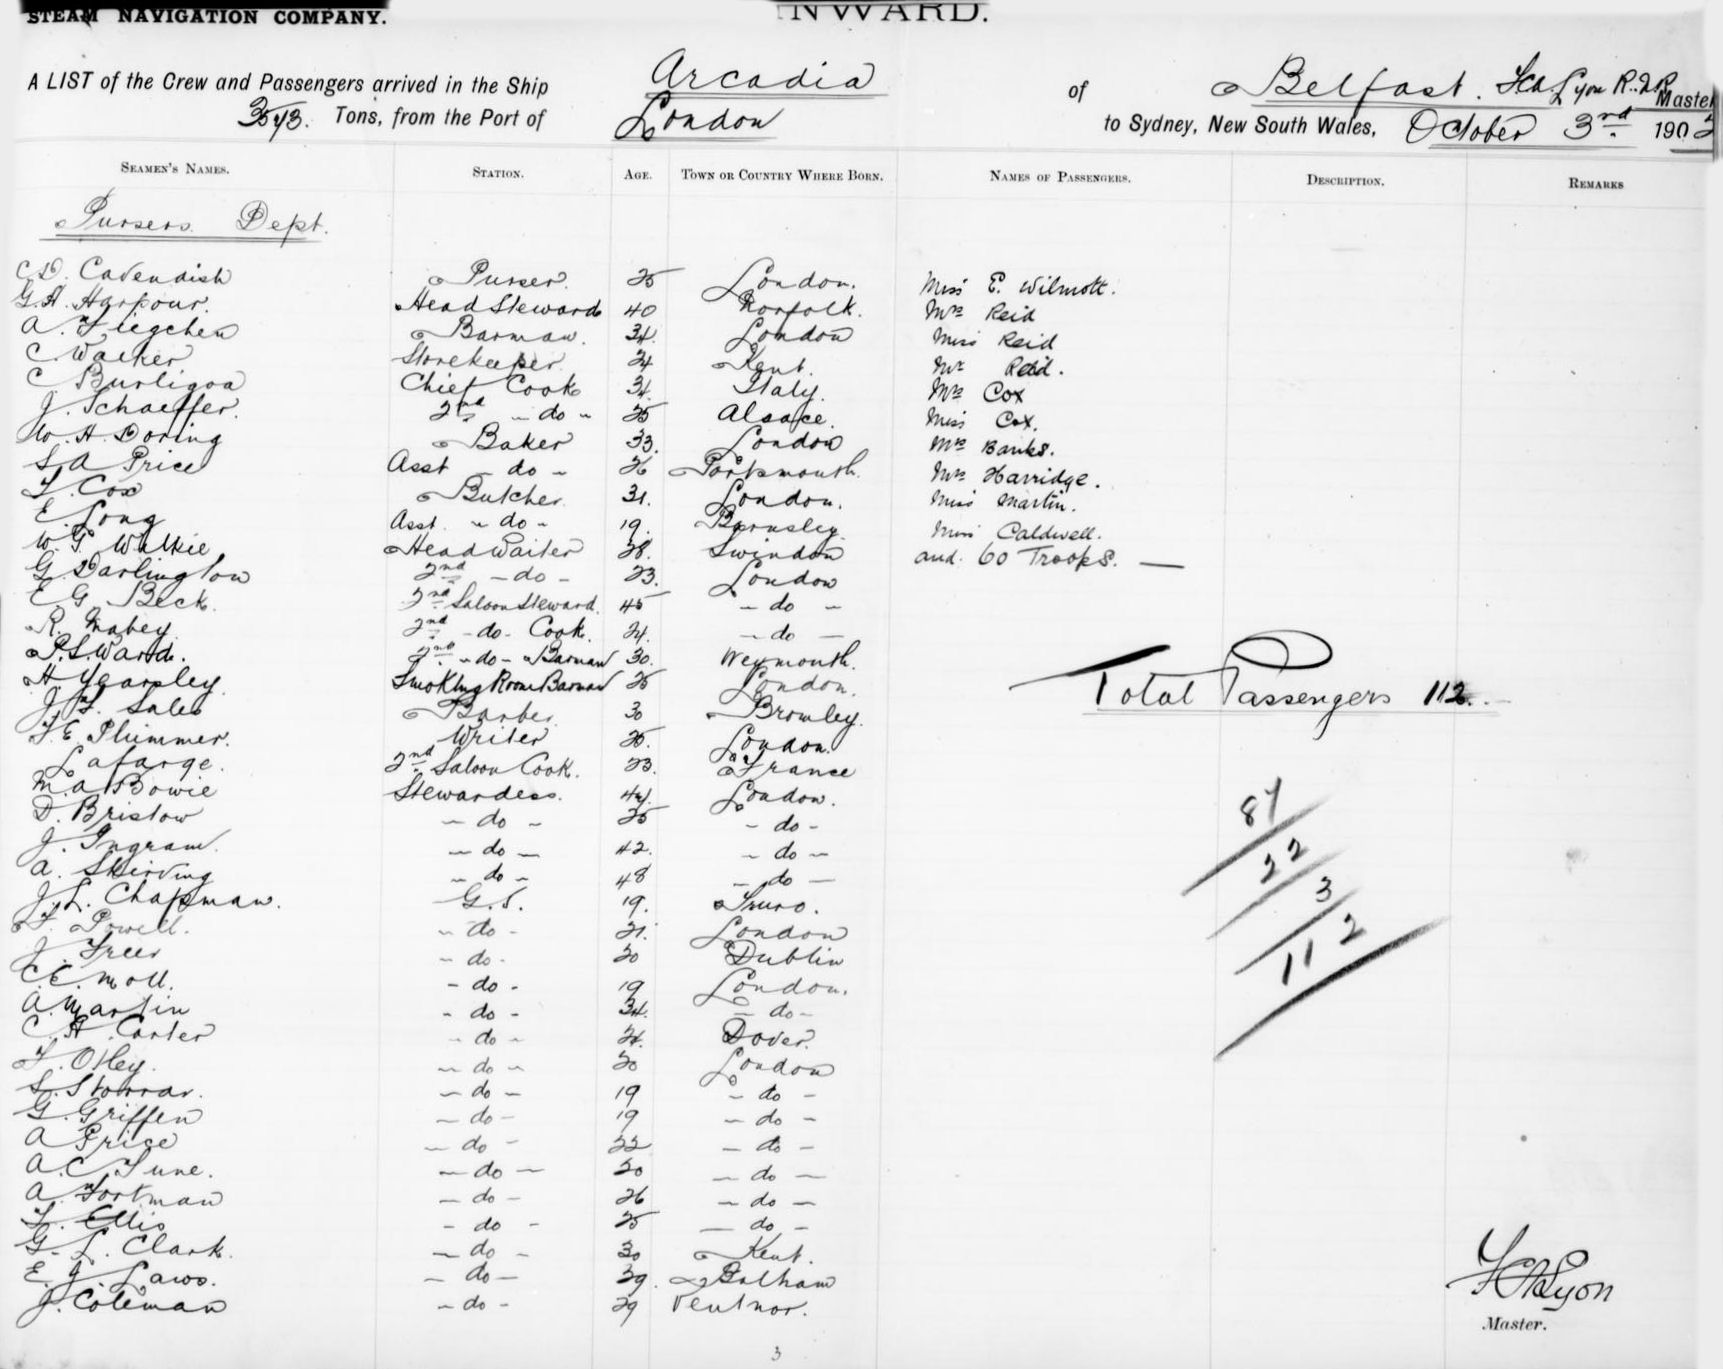 STEAM NAVIGATION COMPANY. INWARD.
A LIST of the Crew and Passengers arrived in the Ship Arcadia of Belfast. Lyon R.N.R. Master
3573. Tons, from the Port of London to Sydney, New South Wales, October 3rd 1902
SEAMEN'S NAMES. STATION. AGE. TOWN OR COUNTRY WHERE BORN. NAMES OF PASSENGERS. DESCRIPTION. REMARKS
Pursers Dept.
C.D. Cavendish Purser. 25 London. Miss E. Wilmott.
G.H. Harpour. Head Steward 40 Norfolk. Mrs Reid
A. Tiegchen Barman. 34. London Miss Reid
C. Walker Storekeeper. 24 Kent. Mr Reid.
C Burligoa Chief Cook 34. Italy. Mrs Cox
J. Schaeffer. 2nd - do - 25 Alsace. Miss Cox.
W. H. Doring Baker 33. London Mrs Banks.
S. A Price Asst - do - 26 Portsmouth. Mrs Harridge.
T. Cox Butcher. 31. London. Miss Martin.
E. Long Asst. - do - 19. Barnsley. Miss Caldwell.
W. G. Walkie Head Waiter 28. Swindon and. 60 Troops. —
G. Darlington 2nd - do - 23. London
E G Beck. 2nd Saloon Steward. 45 - do -
R. Mabey 2nd - do - Cook. 24. - do -
P.S. Ward. 2nd - do - Barman 30. Weymouth.
H Yearsley. Smoking Room Barman 25 London. Total Passengers 112.
J. F. Sales Barber. 30 Bromley.
F. E Plummer. Writer 25. London.
Lafarge. 2nd Saloon Cook. 23. France
M. A Bowie Stewardess. 44. London. 87
D. Bristow - do - 25 - do -
J. Ingram. - do - 42. - do - 22
A. Skirving - do - 48 - do - 3
J. L. Chapman. G.S. 19. Truro.
F. Powell. - do - 21. London 112
J. Freer - do - 20 Dublin
C. E. Moll. - do - 19 London.
A. Martin - do - 34. - do -
C. H. Carter - do - 24. Dover.
F. Otley. - do - 20 London
S. Storrar. - do - 19 - do -
G. Griffen - do - 19 - do -
A Price - do - 22 - do -
A. C. Tune. - do - 20 - do -
A. Fortman - do - 26 - do -
F. Ellis - do - 25 - do -
G. L. Clark. - do - 30 Kent.
E. J. Laws. - do - 39. Balham
J. Coleman - do - 29 Ventnor.
Lyon
Master.
3